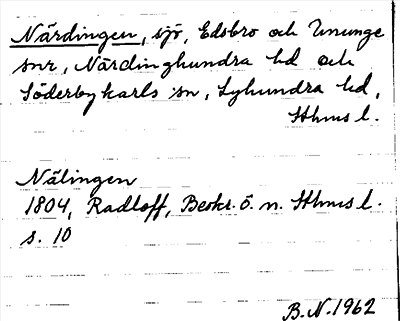 Närdingen, sjö, Edsbro och Ununge
snr, Närdinghundra hd och
Söderbykarls sn, Lyhundra hd,
Sthms l.
Nälingen
1804, Radloff, Beskr. ö. n. Sthms l.
s. 10
B.N. 1962